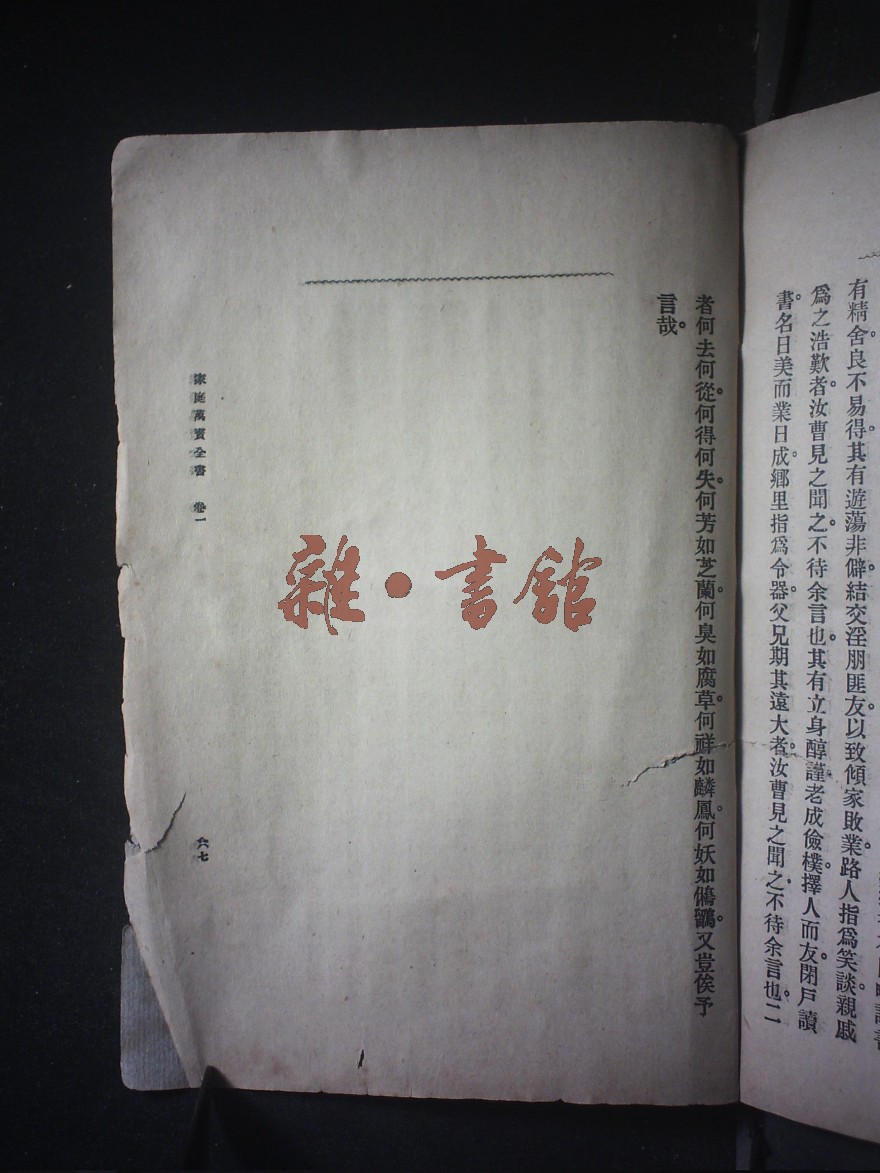 有精舍良不易得。其有遊蕩非僻。結交淫朋匪友。以致傾家敗業。路人指爲笑談。親戚
爲之浩歎者。汝曹見之聞之。不待余言也。其有立身醇謹。老成儉樸。擇人而友。閉戶讀
書。名日美而業日成。鄉里指爲令器。父兄期其遠大者。汝曹見之聞之。不待余言也。二
者何去何從。何得何失。何芳如芝蘭。何臭如腐草。何祥如麟鳳。何妖如鵂鶹。又豈俟予
言哉。
家庭萬寶全書 卷一
六七
雜·書館